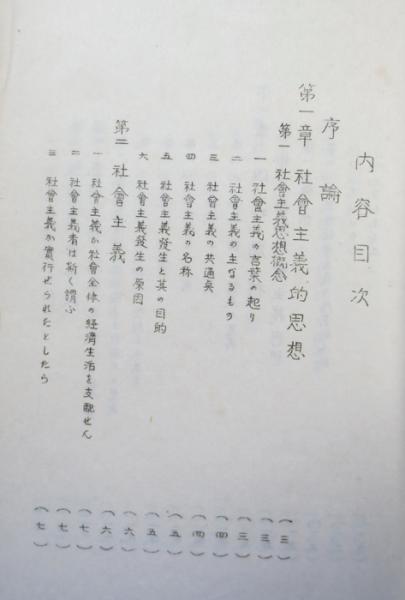 内容目次
序論
第一章 社會主義的思想 (三)
第一 社會主義思想概念 (三)
一 社會主義の言葉の起り (三)
二 社會主義の主なるもの (四)
三 社會主義の共通奌 (四)
四 社會主義の名称 (五)
五 社會主義發生と其の目的 (五)
六 社會主義發生の原因 (六)
第二 社會主義 (六)
一 社會主義か社會全体の経済生活を支配せん (七)
二 社會主義者は斯く謂ふ (七)
三 社會主義か實行せられたとしたら (七)